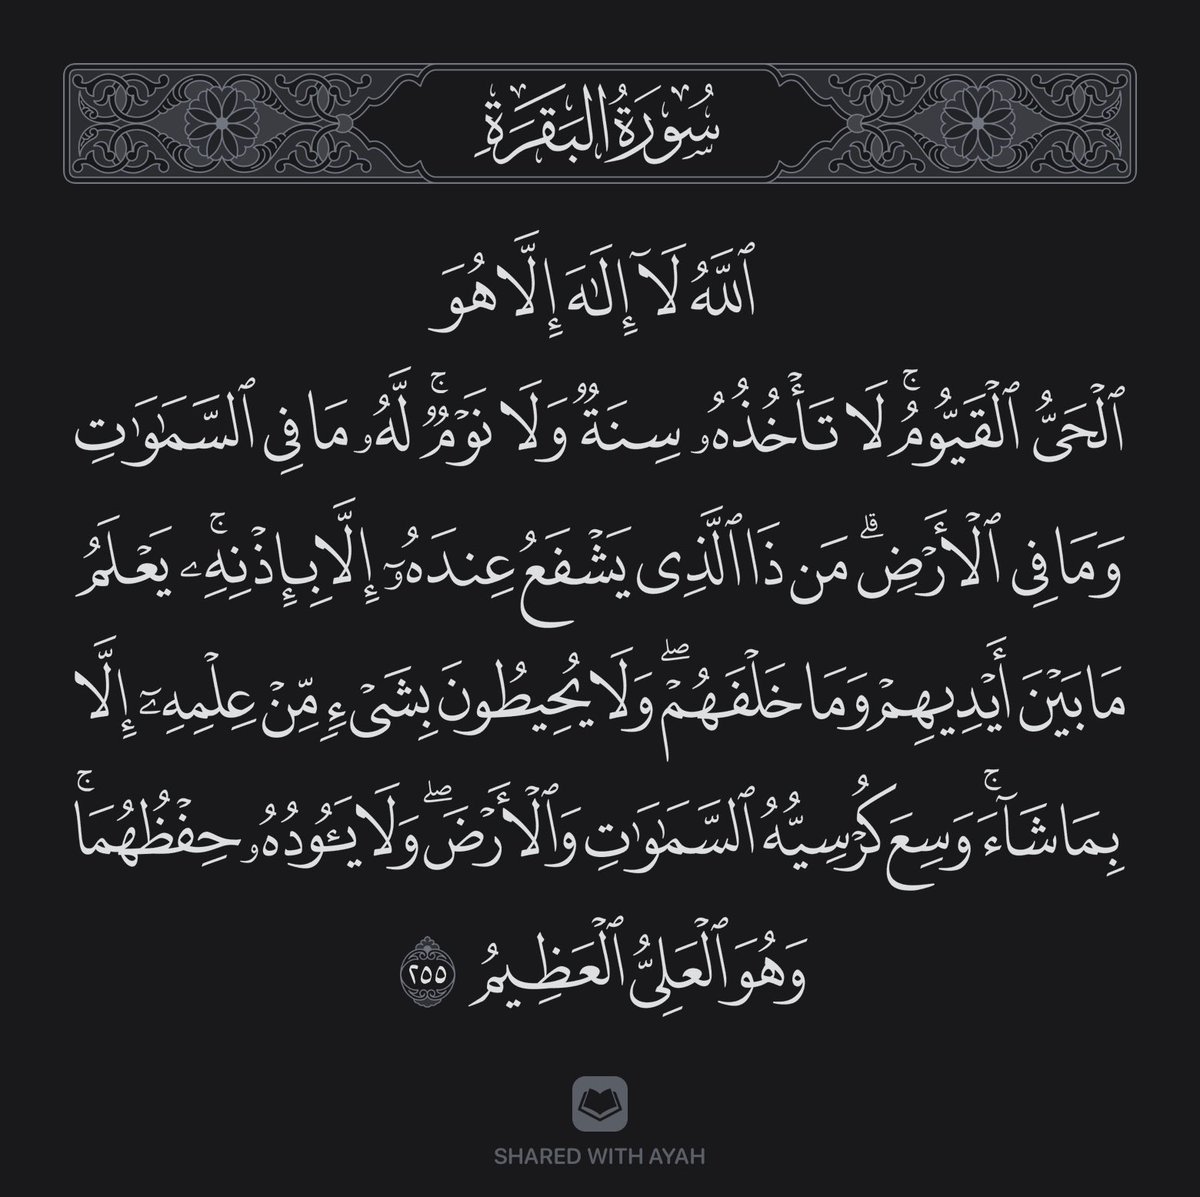 سُورَةُ البَقَرَةِ
ٱللَّهُ لَآ إِلَٰهَ إِلَّا هُوَ
ٱلۡحَيُّ ٱلۡقَيُّومُۚ لَا تَأۡخُذُهُۥ سِنَةٞ وَلَا نَوۡمٞۚ لَّهُۥ مَا فِي ٱلسَّمَٰوَٰتِ
وَمَا فِي ٱلۡأَرۡضِۗ مَن ذَا ٱلَّذِي يَشۡفَعُ عِندَهُۥٓ إِلَّا بِإِذۡنِهِۦۚ يَعۡلَمُ
مَا بَيۡنَ أَيۡدِيهِمۡ وَمَا خَلۡفَهُمۡۖ وَلَا يُحِيطُونَ بِشَيۡءٖ مِّنۡ عِلۡمِهِۦٓ إِلَّا
بِمَا شَآءَۚ وَسِعَ كُرۡسِيُّهُ ٱلسَّمَٰوَٰتِ وَٱلۡأَرۡضَۖ وَلَا يَـُٔودُهُۥ حِفۡظُهُمَاۚ
وَهُوَ ٱلۡعَلِيُّ ٱلۡعَظِيمُ ٢٥٥
SHARED WITH AYAH